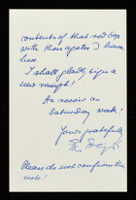 contents of that red box
with then again I have
here.
I shall gladly sign a
new receipt!
Au revoir on
Saturday week!
Yours gratefully
Please do not confirm this
note!